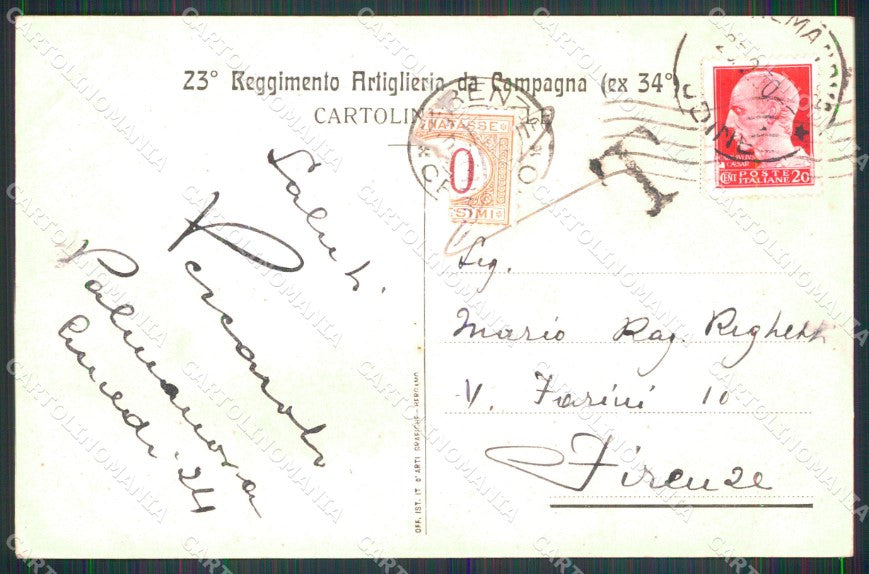 23° Reggimento Artiglieria da Campagna (ex 34°)
CARTOLIN
SEGNATASSE
0
SIMI
FIRENZE
T
PALMANOVA
UDINE
CAESAR
CENT POSTE ITALIANE 20
Saluti
Palmanova
lunedì 24
Sig.
Mario Rag. Righetti
V. Farini 10
Firenze
OFF. IST. IT. D'ARTI GRAFICHE - BERGAMO
CARTOLINOMANIA